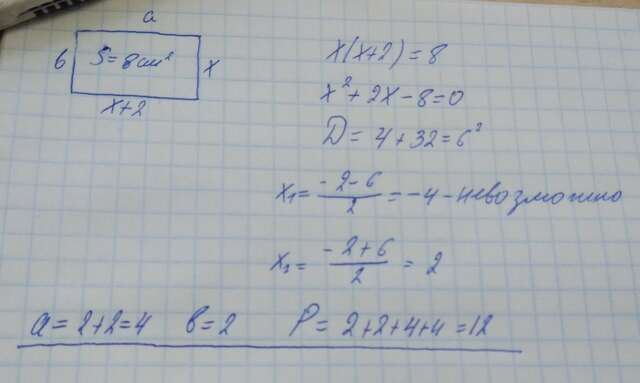 a
в S=8см² x
x+2
x(x+2)=8
x²+2x-8=0
D=4+32=6²
x₁= (-2-6)/2 =-4-невозможно
x₂= (-2+6)/2 = 2
a=2+2=4 в=2 P=2+2+4+4=12